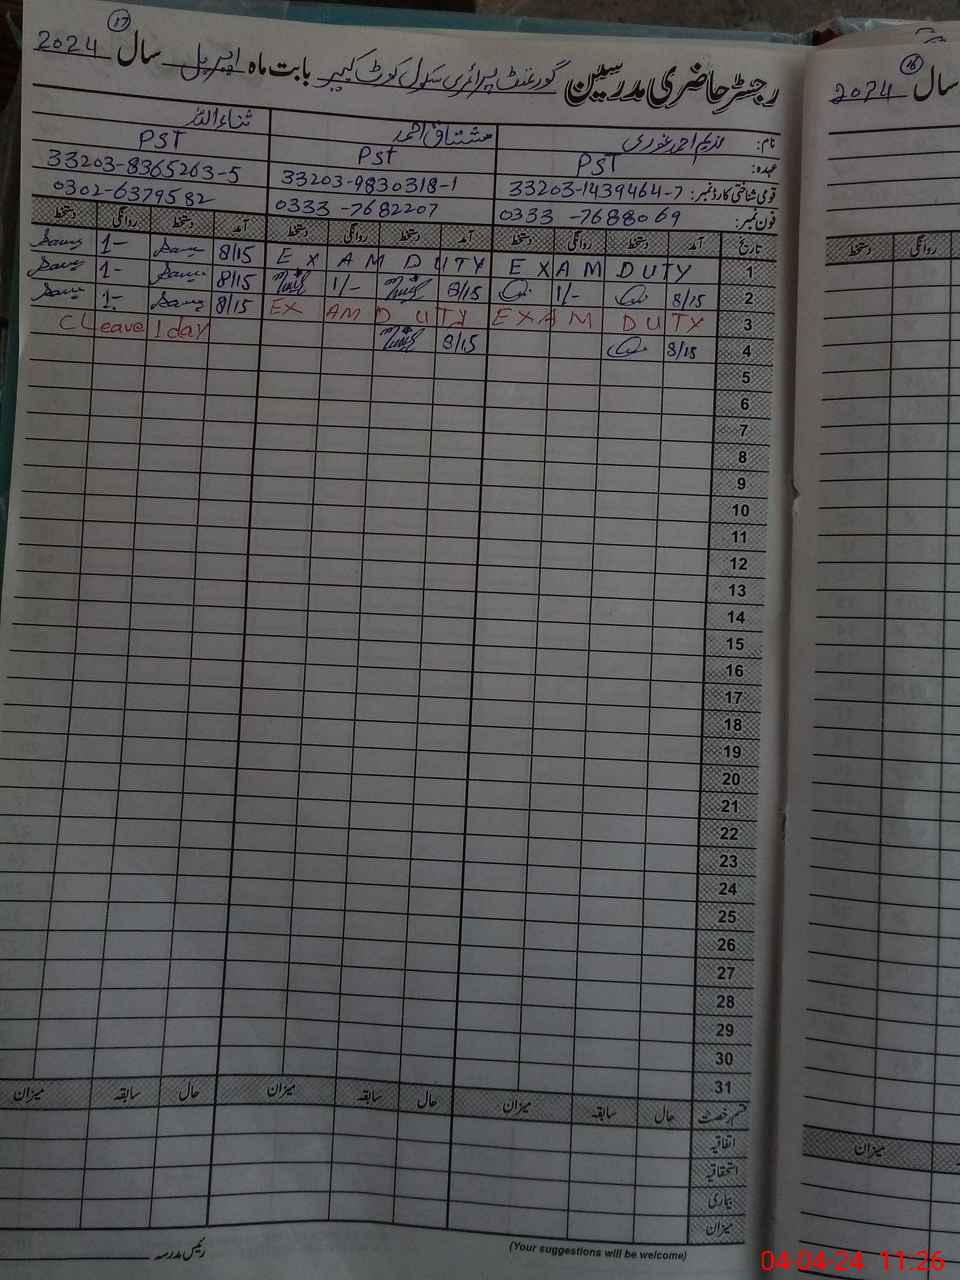 رجسٹر حاضری مدرسین گورنمنٹ پرائمری سکول کوٹ کہپر بابت ماہ اپریل سال 2024
17
نام: ندیم احمد غوری مشتاق احمد ثناء اللہ
عہدہ: PST PST PST
قومی شناختی کارڈ نمبر: 33203-1439464-7 33203-9830318-1 33203-8365263-5
فون نمبر: 0333-7688069 0333-7682207 0302-6379582
تاریخ آمد دستخط روانگی دستخط آمد دستخط روانگی دستخط آمد دستخط روانگی دستخط
1 EXAM DUTY EXAM DUTY 8/15 1-
2 8/15 1/- 8/15 1/- 8/15 1-
3 EXAM DUTY EXAM DUTY 8/15 1-
4 8/15 8/15 C Leave 1 day
5
6
7
8
9
10
11
12
13
14
15
16
17
18
19
20
21
22
23
24
25
26
27
28
29
30
31
قسم رخصت حال سابقہ میزان حال سابقہ میزان حال سابقہ میزان
اتفاقیہ
استحقاقیہ
بیماری
میزان
رئیس مدرسہ
(Your suggestions will be welcome)
سال 2024
16
دستخط روانگی
میزان
04-04-24 11:26